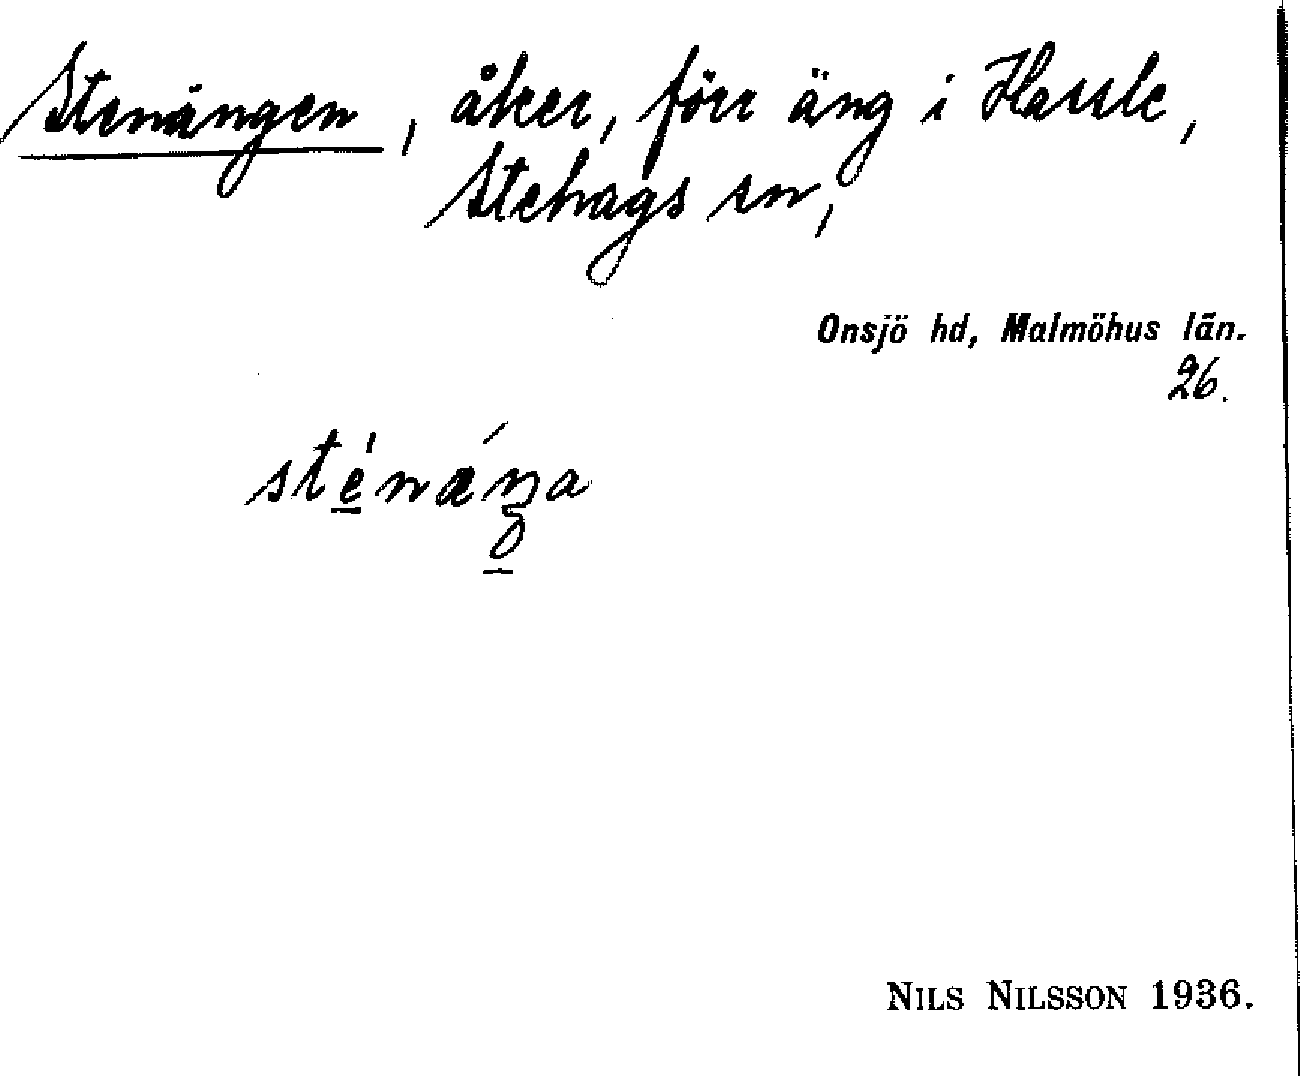 Stenängen, åker, förr äng i Hassle,
Stehags sn,
Onsjö hd, Malmöhus län.
26.
NILS NILSSON 1936.